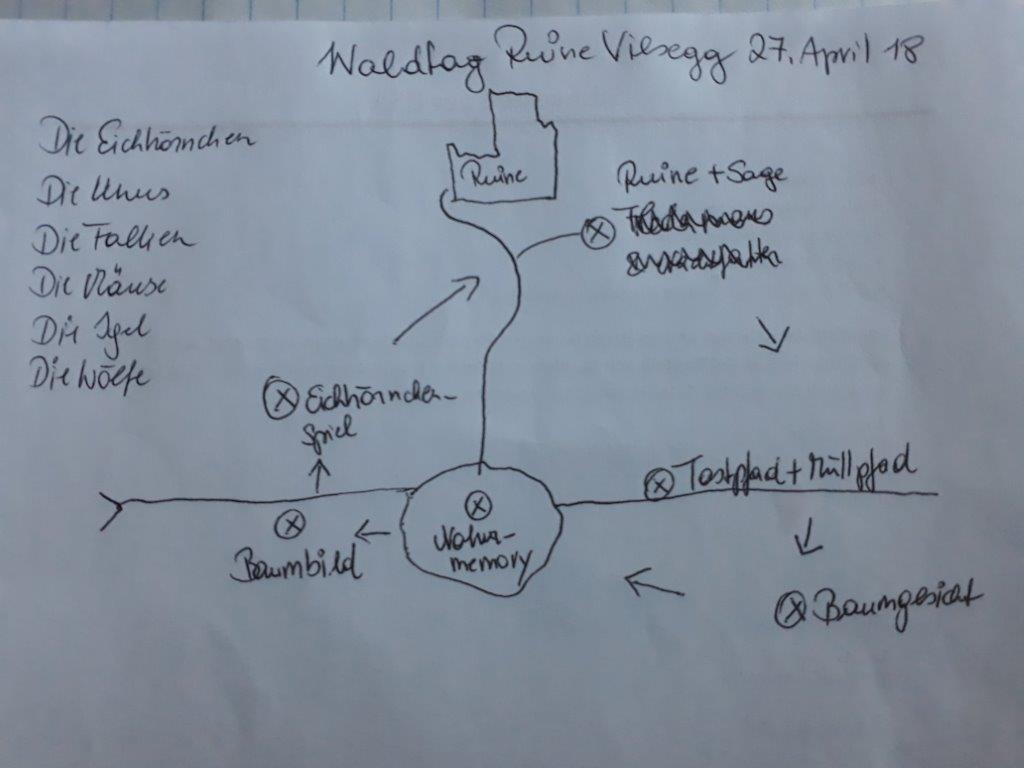 Waldtag Ruine Vilsegg 27. April 18
Die Eichhörnchen
Die Uhus
Die Falken
Die Mäuse
Die Igel
Die Wölfe
Ruine
Ruine + Sage
Eichhörnchen-
spiel
Tastpfad + Müllpfad
Natur-
memory
Baumbild
Baumgesicht